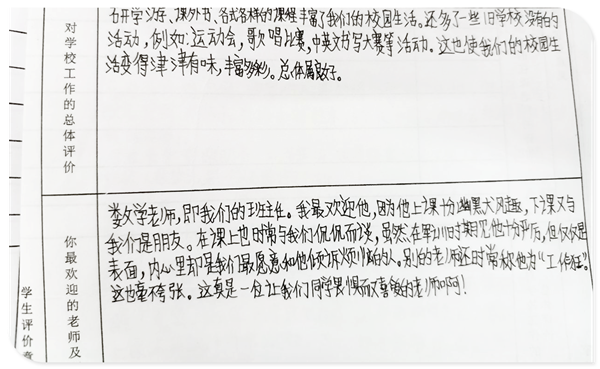 对学校工作的总体评价
召开学习尽、课外书、各式各样的课程丰富了我们的校园生活。还多了一些旧学校没有的
活动，例如：运动会，歌唱比赛，中英文书写大赛等活动。这也使我们的校园生
活变得津津有味，丰富多彩。总体属较好。
你最欢迎的老师及
娄数学老师，即我们的班主任。我最欢迎他，因为他上课十分幽默大风趣，下课又与
我们是朋友。在课上也时常与我们侃侃而谈，虽然在军训时期见他十分严厉，但仅仅是
表面，内心里却是我们最愿意和他倾诉烦恼的人。别的老师还时常称他为“工作狂”。
这也毫不夸张。这真是一位让我们同学畏惧而又喜爱的老师啊！
学生评价意